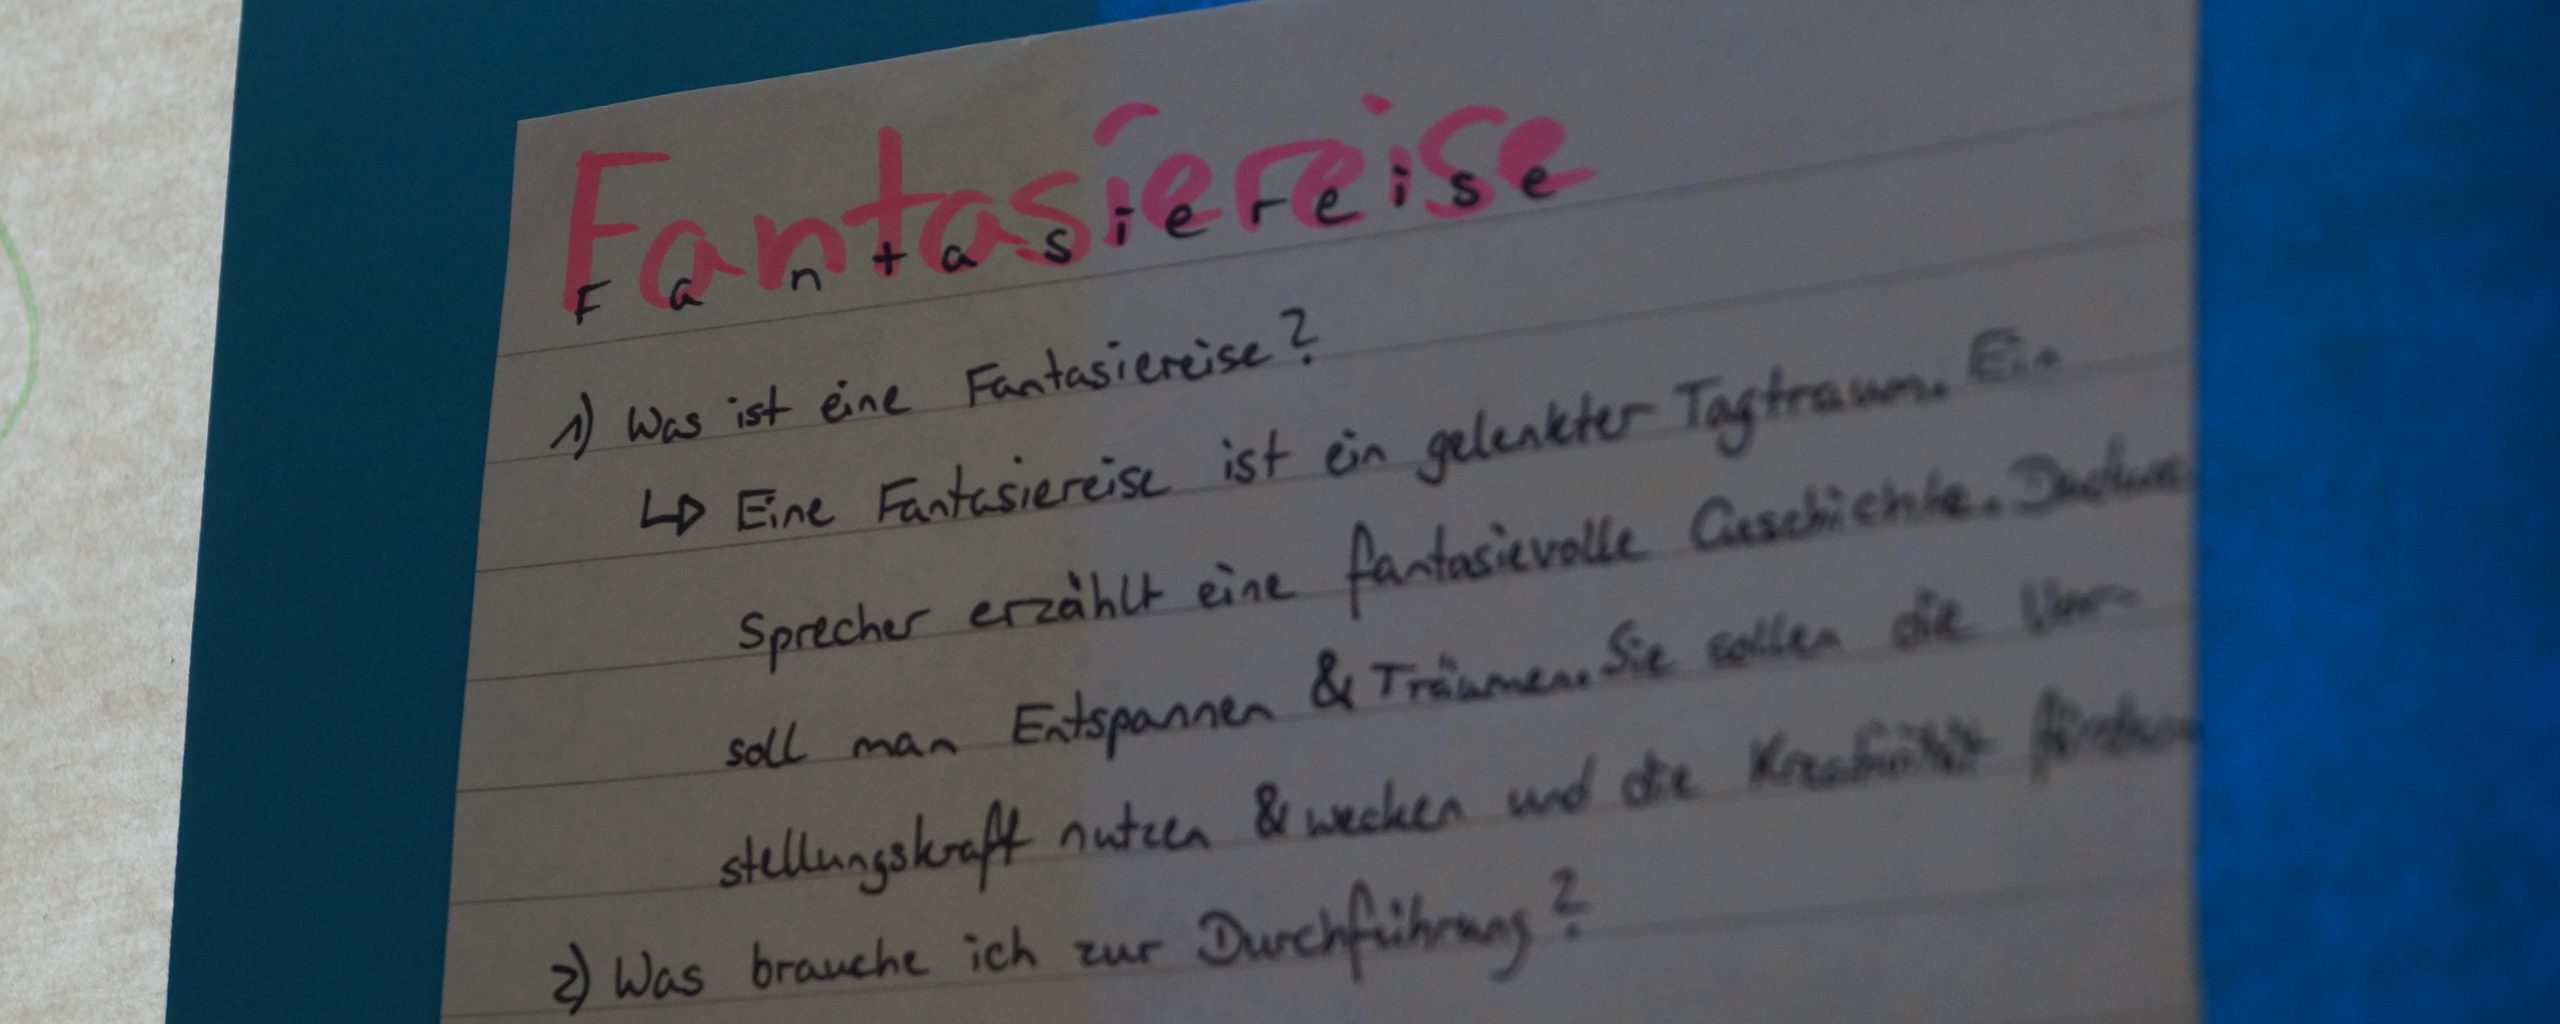 Fantasiereise
Fantasiereise
1) Was ist eine Fantasiereise?
↳ Eine Fantasiereise ist ein gelenkter Tagtraum. Ein
Sprecher erzählt eine fantasievolle Geschichte.
soll man Entspannen & Träumen. Sie sollen die Vor-
stellungskraft nutzen & wecken und die Kreativität fördern
2) Was brauche ich zur Durchführung?